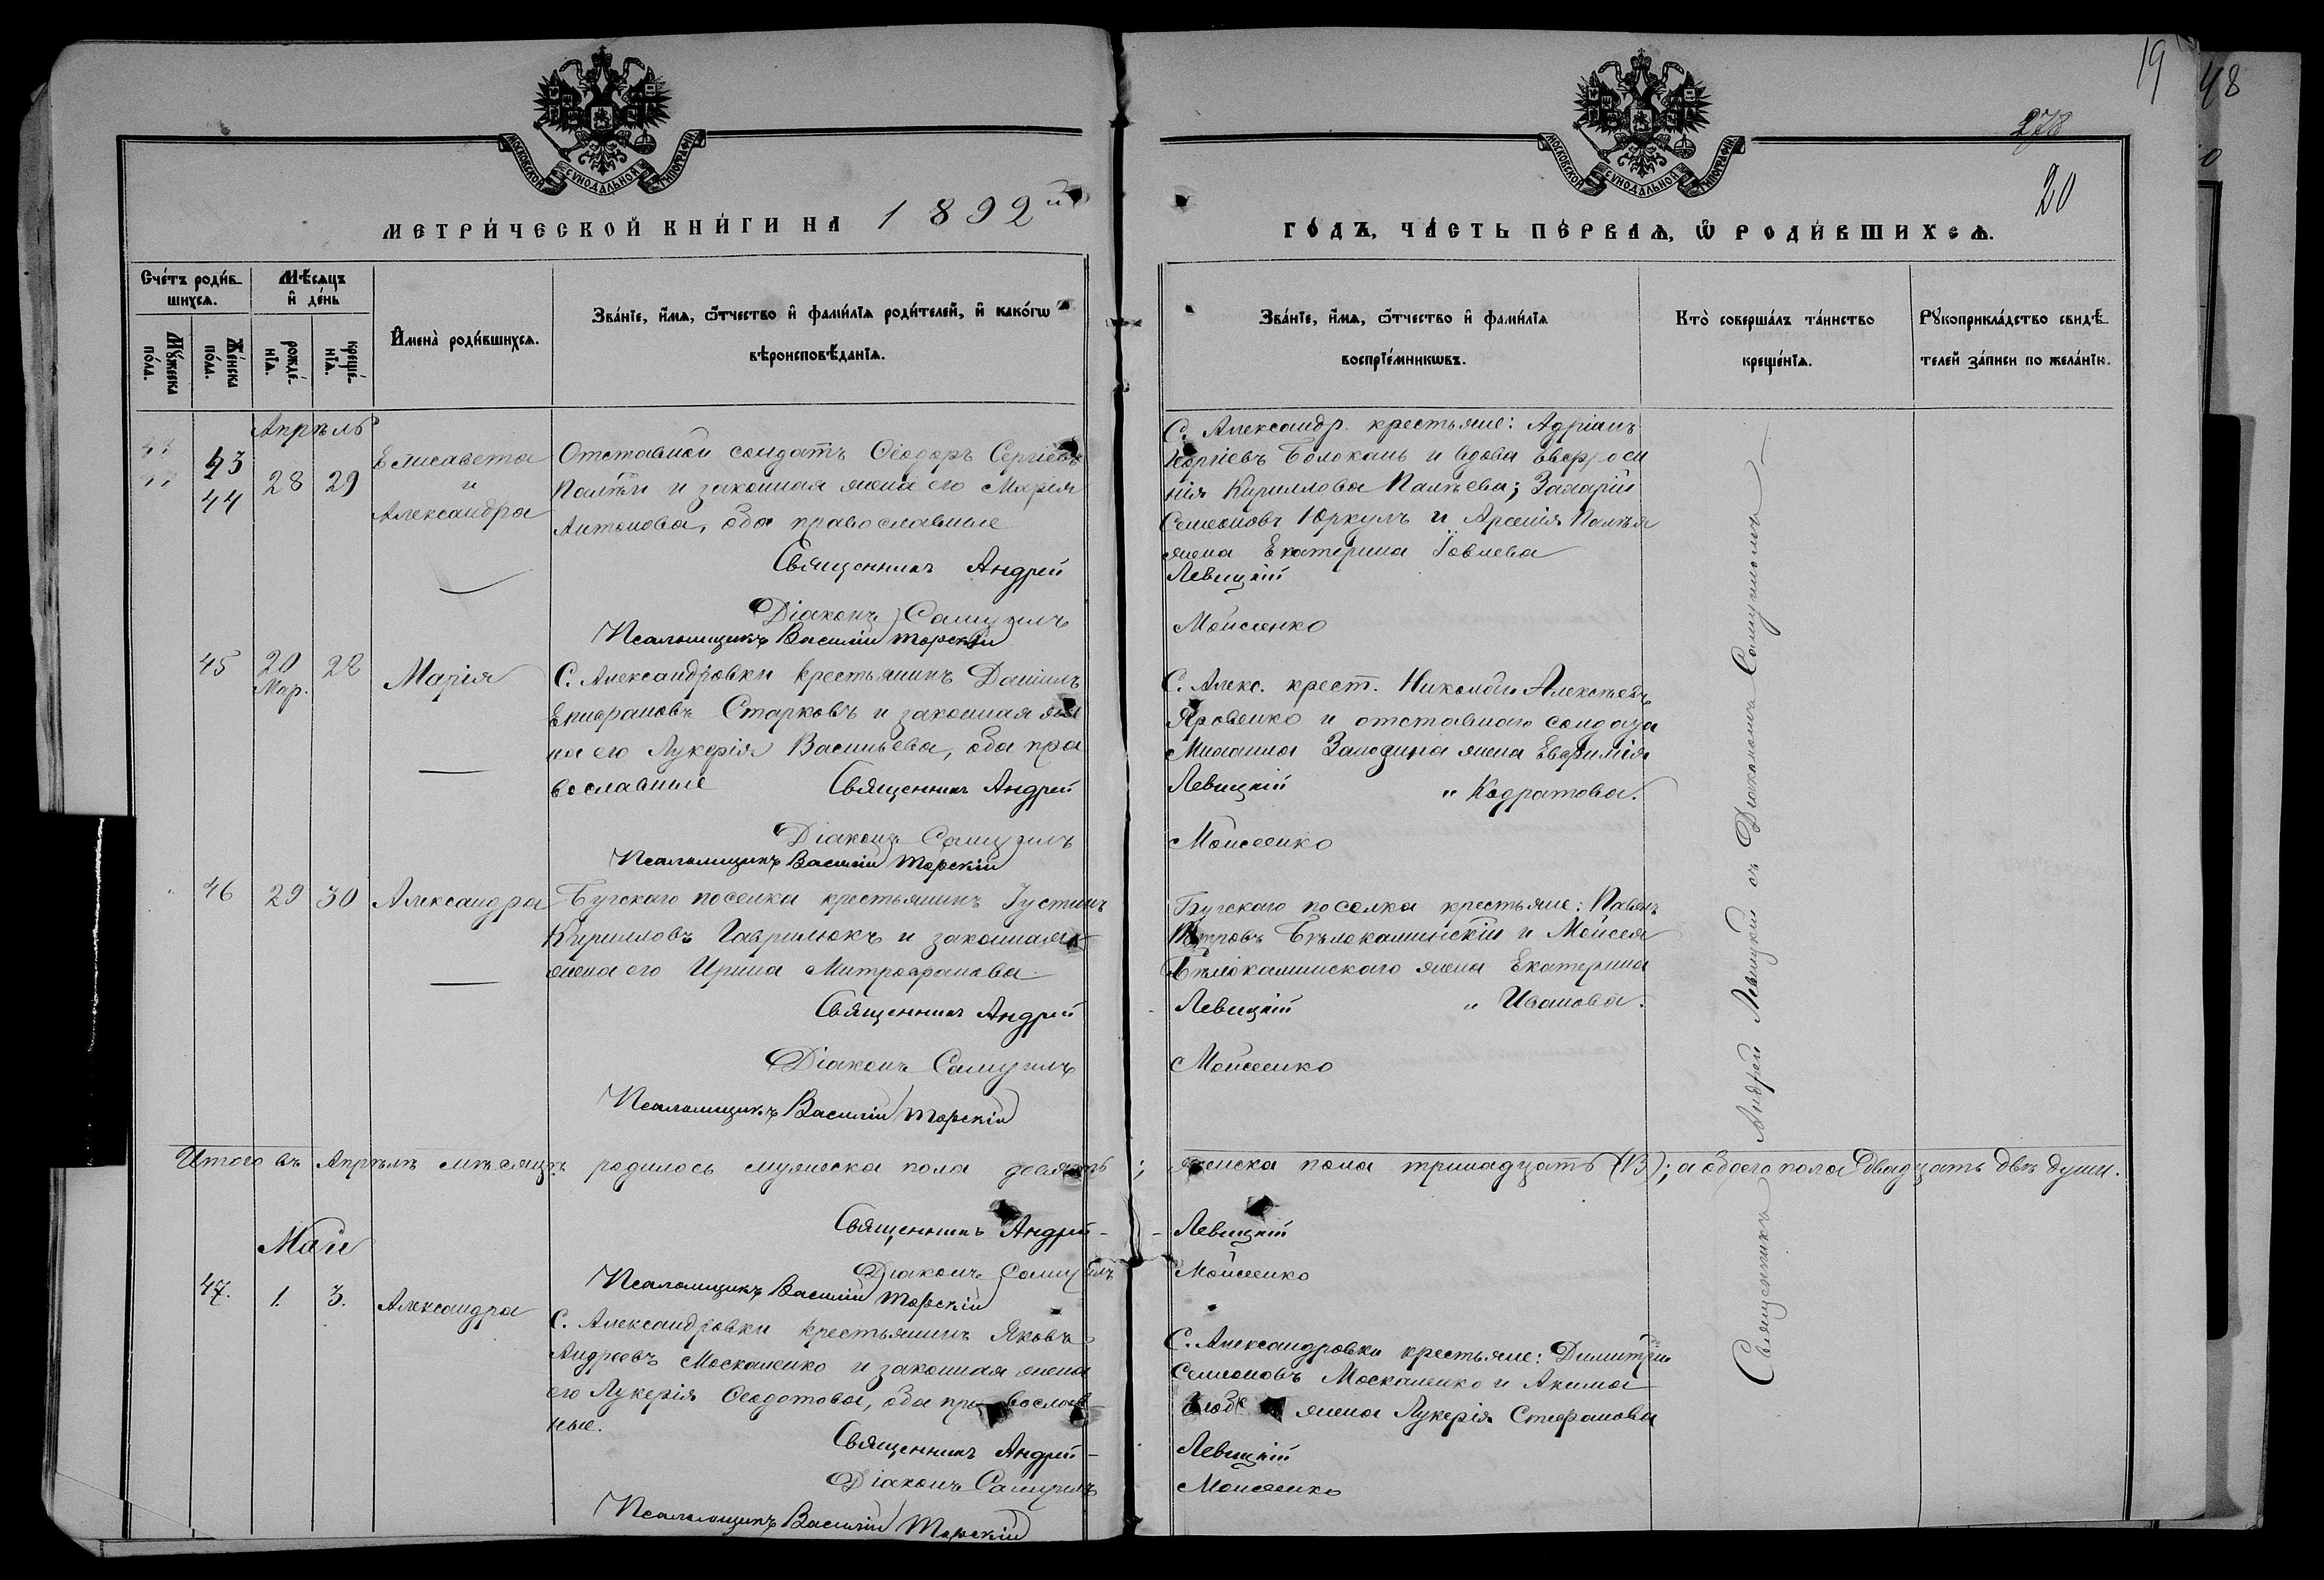 19
48
278
20
МОСКОВСКОЙ СѴНОДАЛЬНОЙ ТИПОГРАФІИ
МОСКОВСКОЙ СѴНОДАЛЬНОЙ ТИПОГРАФІИ
МЕТРИ́ЧЕСКОЙ КНИ́ГИ НА 1892й
ГО́ДЪ, ЧА́СТЬ ПЕ́РВАѦ, Ѿ РОДИ́ВШИХСѦ.
Сче́тъ роди́в-
шихсѧ.
Мѣ́сѧцъ
и҆ де́нь
Мꙋ́жеска
по́ла.
Же́нска
по́ла.
рожде́-
нїѧ.
креще́-
нїѧ.
И҆мена̀ роди́вшихсѧ.
Зва́нїе, и҆́мѧ, ѻ҆́тчество и҆ фами́лїѧ роди́телей, и҆ како́гѡ
вѣроисповѣ́данїѧ.
Зва́нїе, и҆́мѧ, ѻ҆́тчество и҆ фами́лїѧ
воспрїе́мникѡвъ.
Кто̀ соверша́лъ та́инство
креще́нїѧ.
Рꙋкоприкла́дство свидѣ́-
телей за́писи по жела́нїю.
Апрѣль
43
44
28 29
Елисавета
и
Александра
Отставной солдатъ Ѳеодоръ Сергіевъ
Палѣй и законная жена его Марія
Антонова, оба православные
Священникъ Андрей
Діаконъ Самуилъ
Псаломщикъ Василій Торскій
С. Александр. крестьяне: Адріанъ
Георгіевъ Болоканъ и вдова Евфроси
нія Кириллова Палѣева; Захарій
Семеоновъ Юркулъ и Арсенія Палѣя
жена Екатерина Іовлева
Левицкій
Мойсеенко
45
20
Мар.
28
Марія
С. Александровки крестьянинъ Даніилъ
Епифановъ Старковъ и законная же
на его Лукерія Васильева, оба пра
вославные Священникъ Андрей
Діаконъ Самуилъ
Псаломщикъ Василій Торскій
С. Алекс. крест. Николай Алексѣевъ
Яровенко и отставного солдата
Михаила жена Евфимія
Левицкій „ Кодратова.
Мойсеенко
46 29 30 Александра
Бугскаго поселка крестьянинъ Іустинъ
Кирилловъ Гаврилюкъ и законная
жена его Ирина Митрофанова
Священникъ Андрей
Діаконъ Самуилъ
Псаломщикъ Василій Торскій
Бугскаго поселка крестьяне: Павелъ
Петровъ Бѣлокаминскій и Мойсея
Бѣлокаминскаго жена Екатерина
Левицкій „ Иванова.
Мойсеенко
Итого въ Апрѣлѣ мѣсяцѣ родилось мужеска пола девять; женска пола тринадцать (13); а обоего пола двадцать двѣ души.
Священникъ Андрей - Левицкій
Діаконъ Самуилъ Мойсеенко
Псаломщикъ Василій Торскій
Май
47. 1. 3. Александра
С. Александровки крестьянинъ Яковъ
Андреевъ Москаленко и законная жена
его Лукерія Ѳеодотова, оба православ
ные.
Священникъ Андрей -
Діаконъ Самуилъ
Псаломщикъ Василій Торскій
С. Александровки крестьяне: Димитрій
Семеоновъ Москаленко и Акима
жена Лукерія Стефанова
Левицкій
Мойсеенко
Священникъ Андрей Левицкій съ Діакономъ Самуиломъ